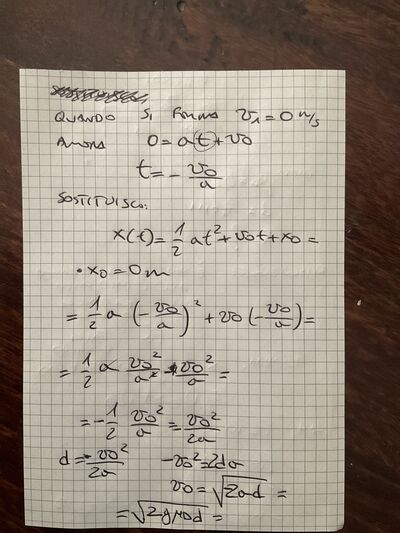 QUANDO SI FERMA v₁ = 0 m/s
ALLORA 0 = at + v0
t = - v0/a
SOSTITUISCO:
x(t) = 1/2 at² + v0t + x0 =
• x0 = 0 m
= 1/2 a (- v0/a)² + v0 (- v0/a) =
= 1/2 a v0²/a² - v0²/a =
= - 1/2 v0²/a = v0²/2a
d = - v0²/2a - v0² = 2da
v0 = √2ad =
= √2gμ0d =